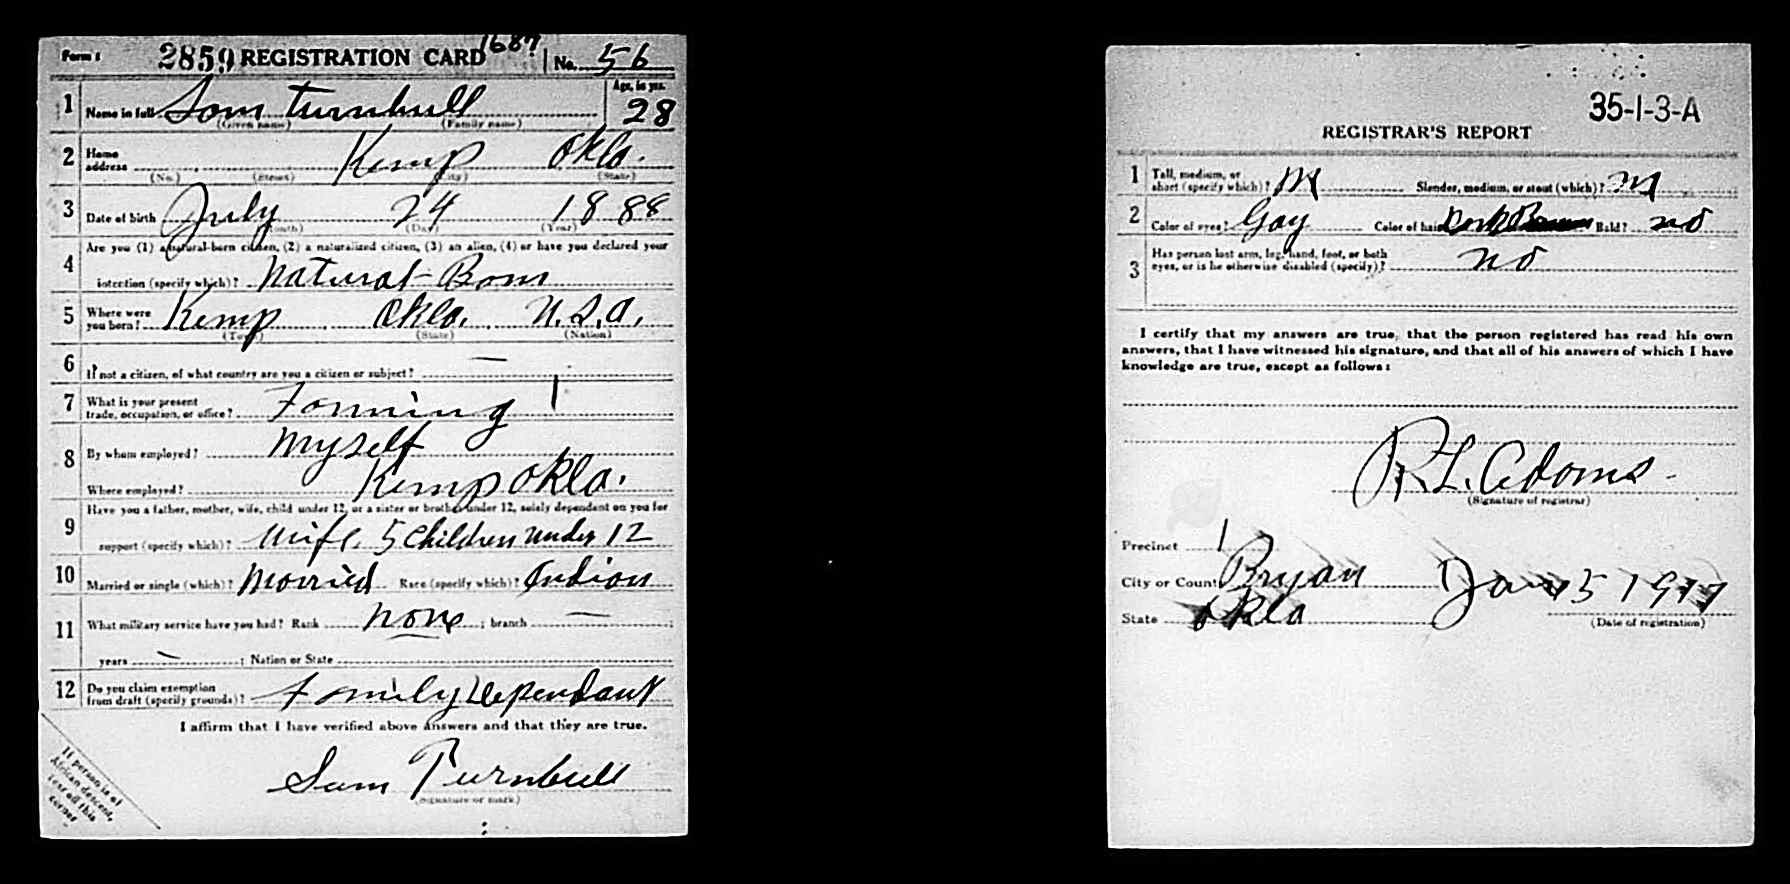 Form 1 2859 REGISTRATION CARD 1687 No. 56
1 Name in full Sam Turnbull Age, in yrs. 28
(Given name) (Family name)
2 Home address Kemp Okla.
(No.) (Street) (City) (State)
3 Date of birth July 24 1888
(Month) (Day) (Year)
4 Are you (1) a natural-born citizen, (2) a naturalized citizen, (3) an alien, (4) or have you declared your
intention (specify which)? Natural-Born
5 Where were you born? Kemp Okla. U.S.A.
(Town) (State) (Nation)
6 If not a citizen, of what country are you a citizen or subject? —
7 What is your present trade, occupation, or office? Farming 1
8 By whom employed? Myself
Where employed? Kemp Okla.
9 Have you a father, mother, wife, child under 12, or a sister or brother under 12, solely dependent on you for
support (specify which)? Wife, 5 Children under 12
10 Married or single (which)? Married Race (specify which)? Indian
11 What military service have you had? Rank none ; branch —
years — ; Nation or State
12 Do you claim exemption from draft (specify grounds)? Family Dependant
I affirm that I have verified above answers and that they are true.
Sam Turnbull
(Signature or mark)
If person is of
African descent,
tear off this
corner
35-1-3-A
REGISTRAR'S REPORT
1 Tall, medium, or short (specify which)? M Slender, medium, or stout (which)? M
2 Color of eyes? Gay Color of hair Dark Bald? no
3 Has person lost arm, leg, hand, foot, or both eyes, or is he otherwise disabled (specify)? no
I certify that my answers are true, that the person registered has read his own
answers, that I have witnessed his signature, and that all of his answers of which I have
knowledge are true, except as follows:
R. L. Adams
(Signature of registrar)
Precinct 1
City or County Bryan 5 1917
State Okla (Date of registration)